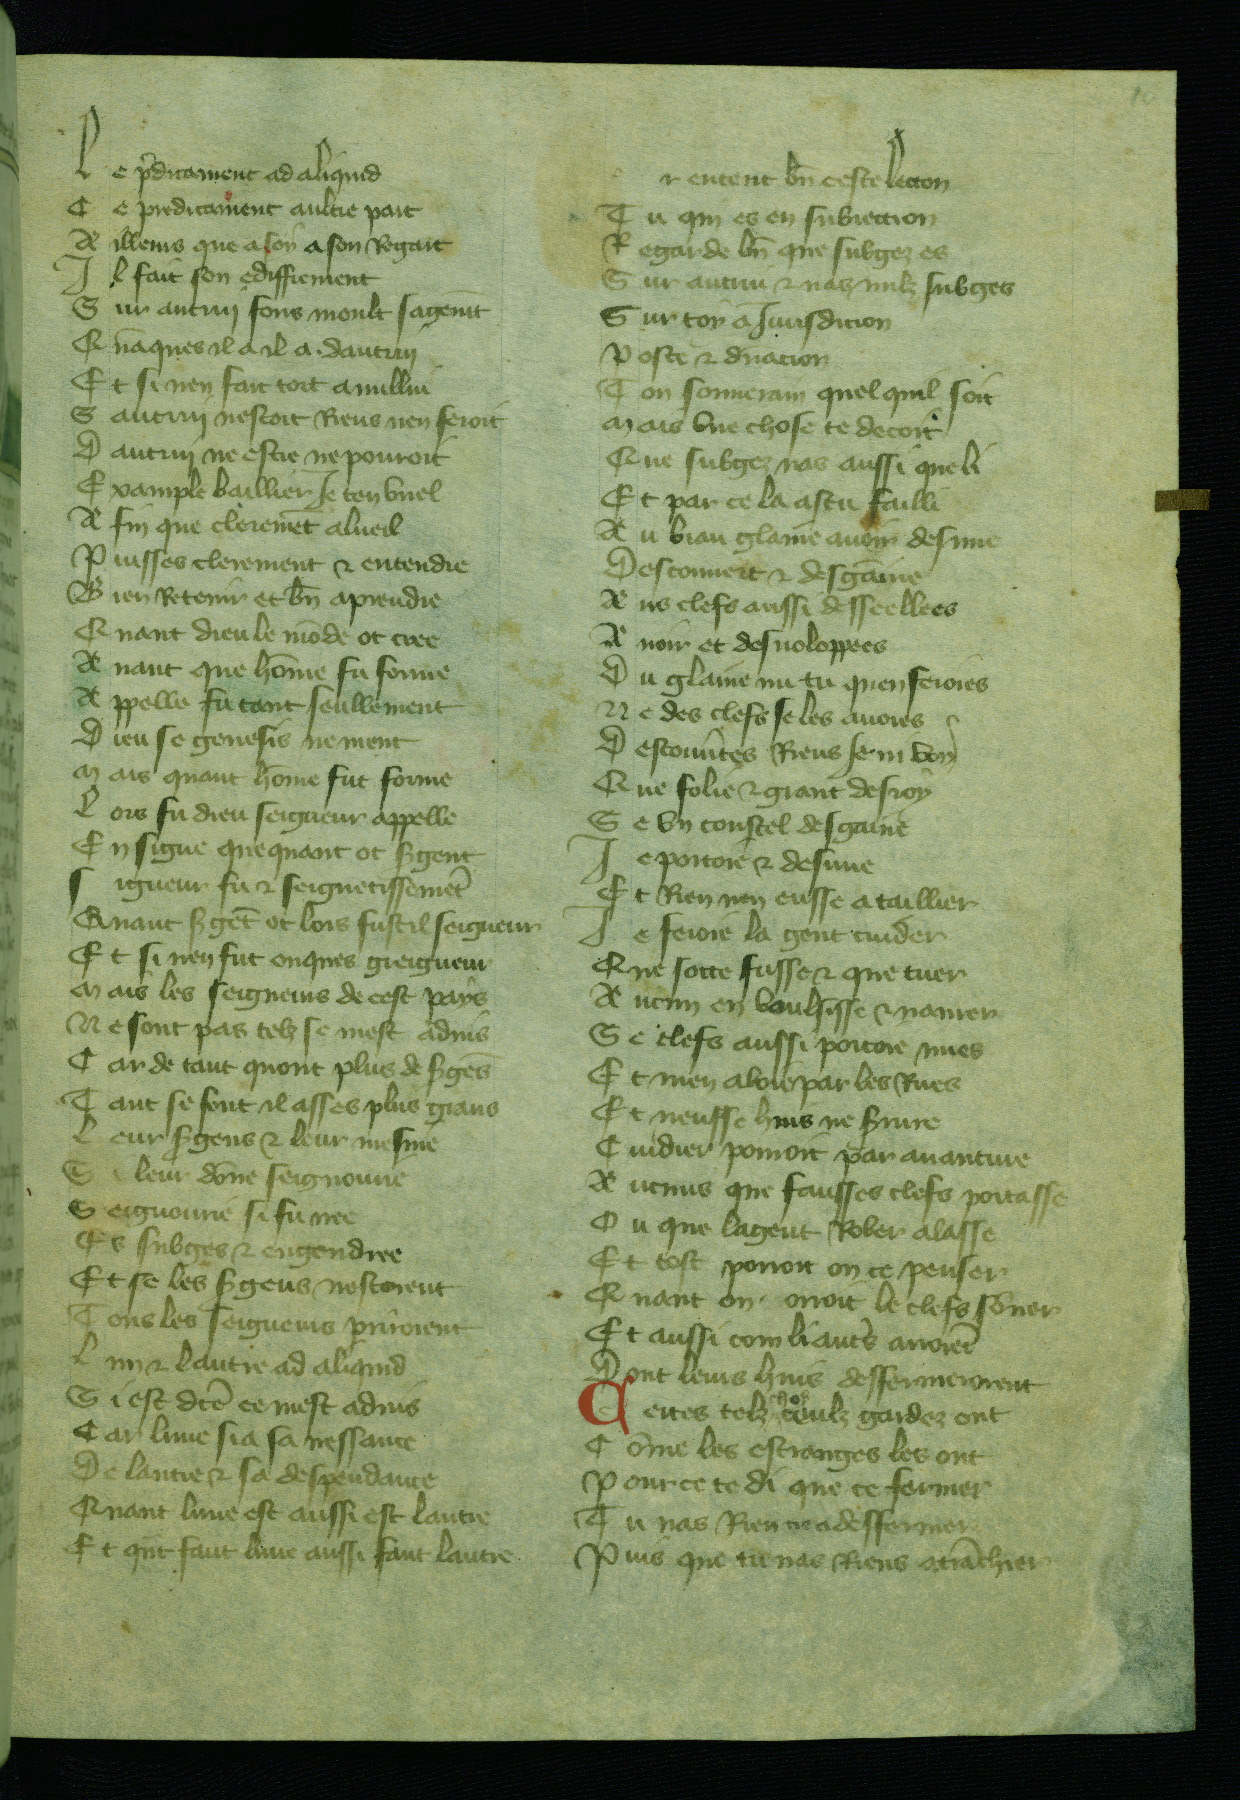 Le p̄dicament ad aliquid
Ce predicament aultre part
Ailleurs que a soy a son Regart
Il fait son ediffiement
Sur autruy fons moult sagemēt
Q̄naques il a il a dautruy
Et si nen fait tort a nulluy
S autruy nestoit Riens nen seroit
Dautruy ne estre ne pouroit
Example baillier Je ten vuel
Afin que cleremēt a lueil
Puisses clerement ⁊ entendre
Bien Retenir et bn̄ aprendre
Quant dieu le mōde ot cree
Auant que hōme fu forme
Appelle fu tant seullement
Dieu se genesis ne ment
Mais quant hōme fut forme
Lors fu dieu seigneur appelle
En signe que quant ot s̄gent
Sigueur fu ⁊ seigneurissemēt
Quant s̄gēt ot lors fust il seigneur
Et si nen fut onques greigneur
Mais les seigneurs de cest pays
Ne sont pas telz se mest aduis
Car de tant quont plus de s̄gēs
Tant se font il asses plus grans
Leur s̄gens ⁊ leur mesme
Si leur dōne seignourie
Seignourie si fu nee
Es subges ⁊ engendree
Et se les s̄gens nestoient
Tous les seigneurs p̄iroient
Lun ⁊ lautre ad aliquid
Si est dte̅ ce mest aduis
Car lune si a sa nessance
De lautre ⁊ sa despendance
Quant lune est aussi est lautre
Et qn̄t faut lune aussi faut lautre
r entent bn̄ ceste lecton
Tu qui es en subiection
Regarde bn̄ que subgez es
Sur autrui ⁊ nas nulz subges
Sur toy a Jurisdicion
Poste ⁊ dn̄acion
Ton souuerain quel quil soit
Mais vne chose te decoit
Que subgez nas aussi que li
Et par ce la as tu failli
Au biau glaiue auoir desnue
Desconuert ⁊ desgaine
Aus clefs aussi desseellees
Auoir et desuoloppees
Du glaiue nu tu quen feroies
Ne des clefs se les auoies
Descouūtes Riens Je ni voy
Que folie ⁊ grant desroy
Se vn coustel desgaine
Je portoie ⁊ desnue
Et Rien nen eusse a taillier
Je feroie la gent cuider
Que sotte fusse ⁊ que tuer
Aucun en voulsisse ⁊ naurer
Se clefs aussi portoie nues
Et men aloie par les Rues
Et neusse huis ne s̄rure
Cuidier pouroit par auanture
Aucuns que fausses clefs portasse
Ou que la gent Rober alasse
Et tost porroit on ce penser
Quant on orroit le clefs sōner
Et aussi com li aut̄s auroiēt
Dont leurs huis deffermeroient
Certes telz choz ceulz gardez ont
Cōme les estranges les ont
Pour ce te di que ce fermer
Tu nas Rien ne a deffermer
Puis que tu nas Riens a trāchier